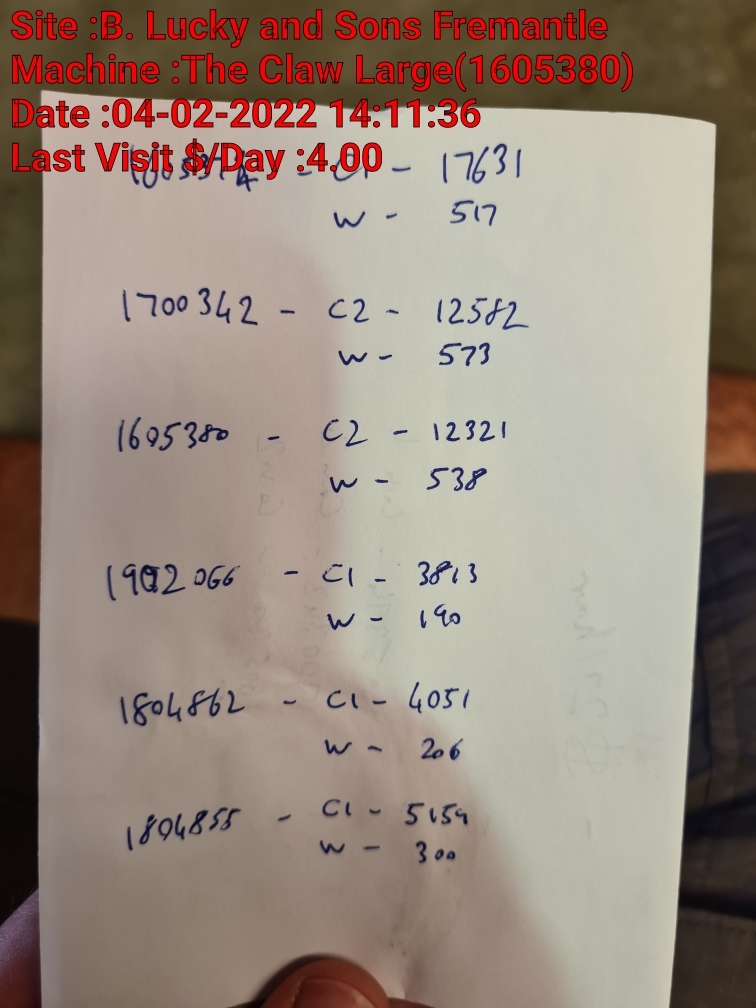 Site :B. Lucky and Sons Fremantle
Machine :The Claw Large(1605380)
Date :04-02-2022 14:11:36
Last Visit $/Day :4.00
- C1 - 17631
W - 517
1700342 - C2 - 12582
W - 573
1605380 - C2 - 12321
W - 538
1902066 - C1 - 3813
W - 190
1804862 - C1 - 4051
W - 206
1804855 - C1 - 5159
W - 300